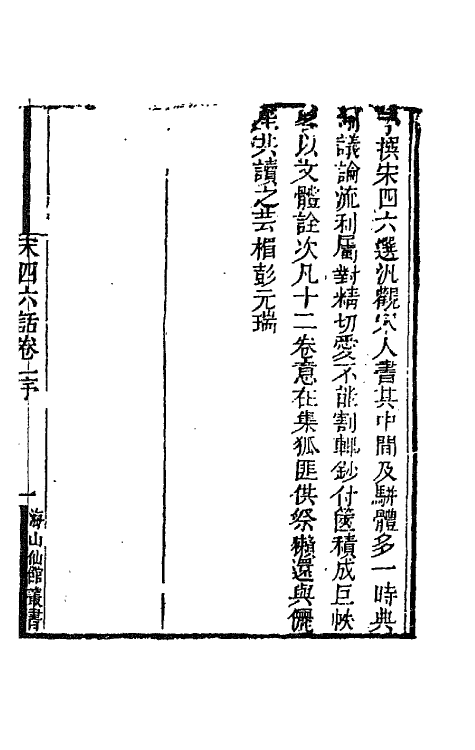 撰宋四六選汎觀宋人書其中間及駢體多一時典
議論流利屬對精切愛不能割輒鈔付篋積成巨帙
以文體詮次凡十二卷意在集狐匪供祭獺還與儷
共讀之芸楣彭元瑞
宋四六話卷上序
一
海山仙館叢書